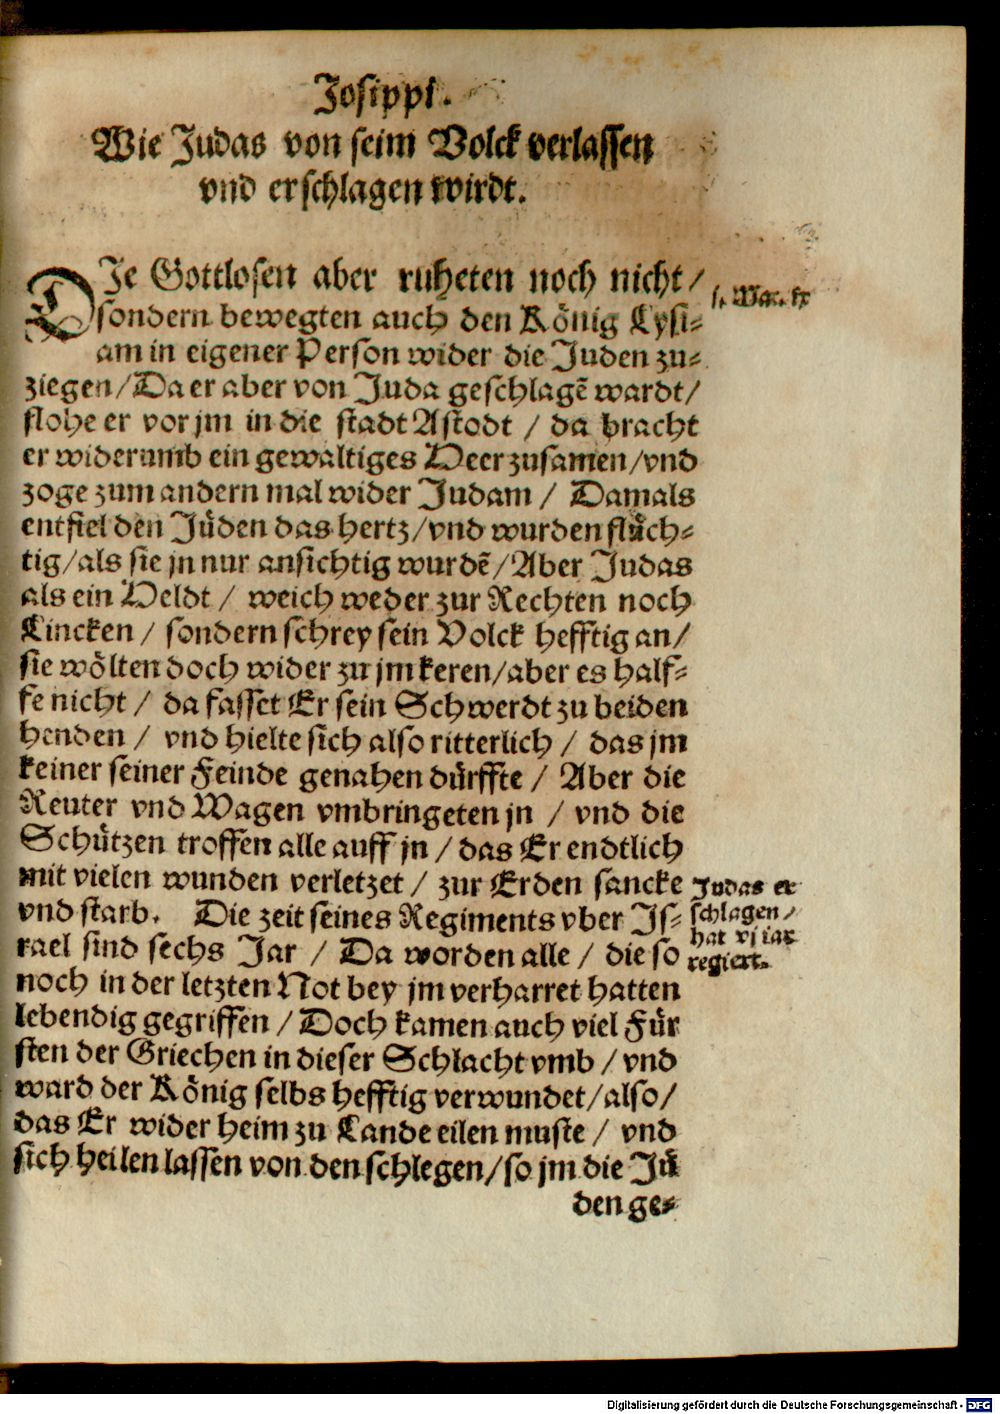 Josippi.
Wie Judas von seim Volck verlassen
vnd erschlagen wirdt.
DIe Gottlosen aber ruheten noch nicht /
sondern bewegten auch den König Lysi⸗
am in eigener Person wider die Juden zu⸗
ziegen / Da er aber von Juda geschlagē wardt /
flohe er vor jm in die stadt Astodt / da bracht
er widerumb ein gewaltiges Heer zusamen / vnd
zoge zum andern mal wider Judam / Damals
entfiel den Jüden das hertz / vnd wurden flüch⸗
tig / als sie jn nur ansichtig wurdē / Aber Judas
als ein Heldt / weich weder zur Rechten noch
Lincken / sondern schrey sein Volck hefftig an /
sie wölten doch wider zu jm keren / aber es half⸗
fe nicht / da fasset Er sein Schwerdt zu beiden
henden / vnd hielte sich also ritterlich / das jm
keiner seiner Feinde genahen dürffte / Aber die
Reuter vnd Wagen vmbringeten jn / vnd die
Schützen troffen alle auff jn / das Er endtlich
mit vielen wunden verletzet / zur Erden sancke
vnd starb. Die zeit seines Regiments vber Is⸗
rael sind sechs Jar / Da worden alle / die so
noch in der letzten Not bey jm verharret hatten
lebendig gegriffen / Doch kamen auch viel Für
sten der Griechen in dieser Schlacht vmb / vnd
ward der König selbs hefftig verwundet / also /
das Er wider heim zu Lande eilen muste / vnd
sich heilen lassen von den schlegen / so jm die Jü
den ge⸗
1. Mac. ix
Judas er
schlagen /
hat vj iar
regiert.
Digitalisierung gefördert durch die Deutsche Forschungsgemeinschaft - DFG